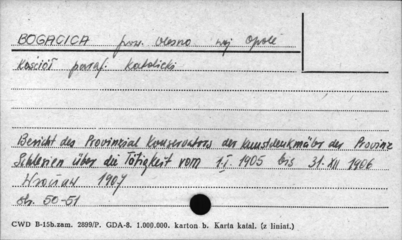 BOGACICA pow. Olesno woj opole
Kościół paraf. katolicki
Bericht des Provinzial Konservators der Kunstdenkmäler der Provinz
Schlesien über die Tätigkeit vom 1.I. 1905 bis 31.XII 1906
Wrocław 1907
str. 50-51
CWD B-15b.zam. 2899/P. GDA-8. 1.000.000. karton b. Karta katal. (z liniat.)